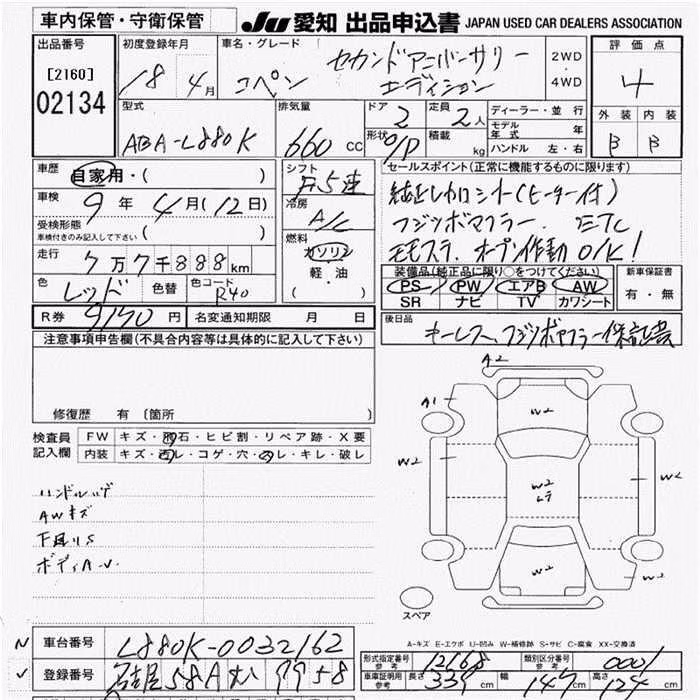 車内保管・守衛保管 JU 愛知 出品申込書 JAPAN USED CAR DEALERS ASSOCIATION
出品番号 初度登録年月 車名・グレード 評価点
[2160] 02134
18年 4月 コペン セカンドアニバーサリーエディション 2WD・4WD 4
型式 排気量 ドア 定員 ディーラー・並行 外装 内装
ABA-L880K 660cc 2 2人 モデル年式 年 B B
形状 O/P 積載 kg ハンドル 左・右
車歴 自家用・( ) シフト F5速 セールスポイント(正常に機能するものに限ります)
車検 9年 4月(12日) 冷房 A/C 純正レカロシート(ヒーター付)
受検形態 ( )
車検付きのみ記入して下さい
フジツボマフラー. ETC
走行 7万7千888km 燃料 ガソリン 軽・油 モモステ. オープン作動O/K!
色 レッド 色替 色コード R40
装備品(純正品に限り○をつけてください) 新車保証書
PS PW エアB AW 有・無
SR ナビ TV カワシート
R券 9170円 名変通知期限 月 日
後日品 キーレス、フジツボマフラー保証書
注意事項申告欄(不具合内容等は具体的に記入して下さい)
修復歴 有〔箇所 〕
検査員記入欄 FW キズ・飛石・ヒビ割・リペア跡・X要
内装 キズ・汚レ・コゲ・穴・スレ・キレ・破レ
ハンドルハゲ
AWキズ
下廻りS
ボディA.U.
A2
A1
W2
W2
W2
W2
W2
W2
スペア
A-キズ E-エクボ U-凹み W-補修跡 S-サビ C-腐食 XX-交換済
車台番号 L880K-0032162
形式指定番号 参考 12168 類別区分番号 参考 0001
登録番号 名古屋 58A 99 58
車庫証明用 参考 長さ 339cm 幅 147cm 高さ 124cm